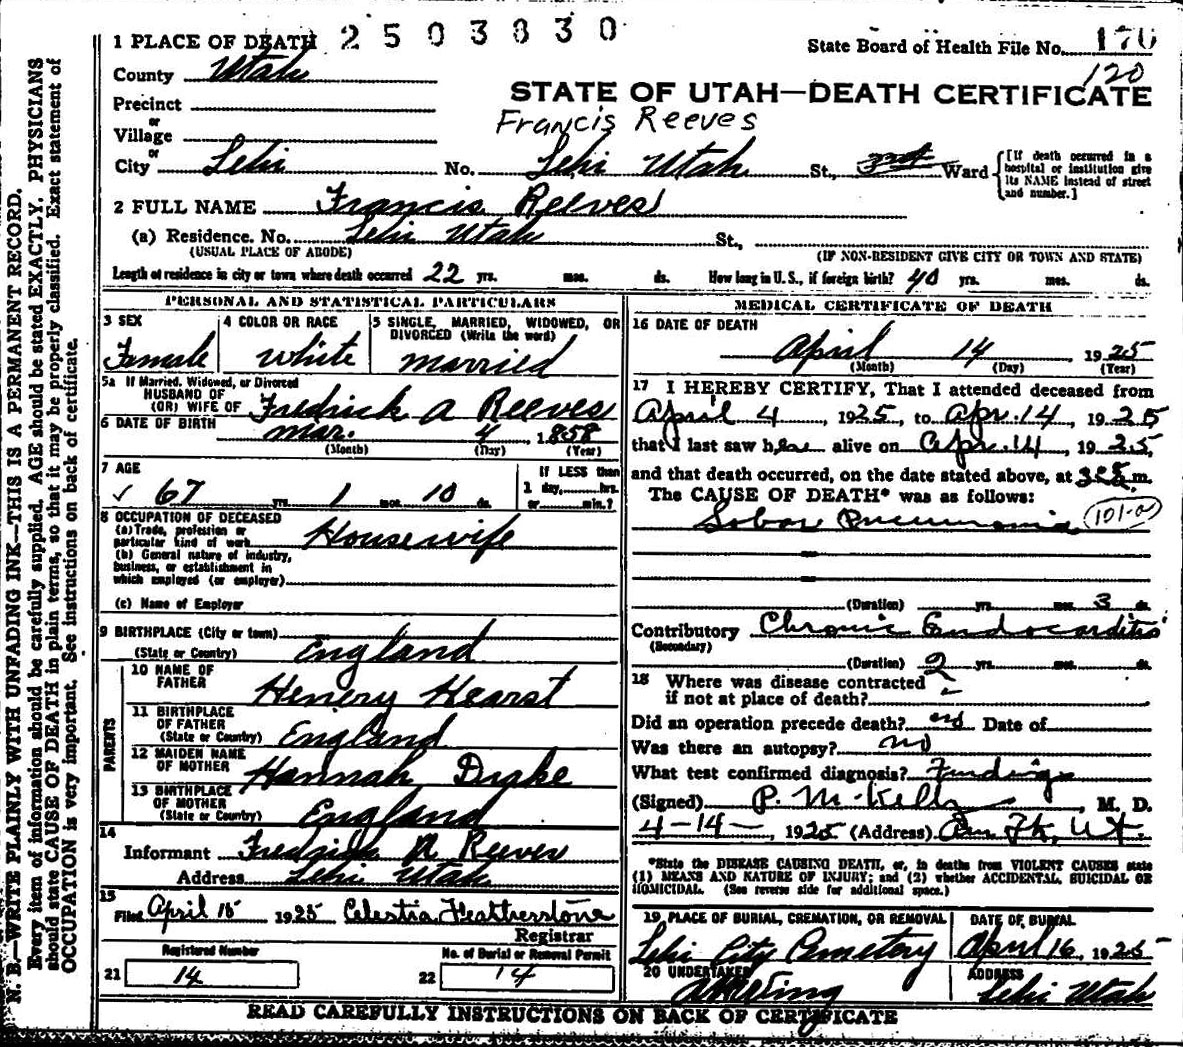 2503830
1 PLACE OF DEATH
State Board of Health File No. 170
County Utah
120
Precinct
STATE OF UTAH—DEATH CERTIFICATE
or
Village
Francis Reeves
or
City Lehi No. Lehi Utah St., Ward
[If death occurred in a hospital or institution give its NAME instead of street and number.]
2 FULL NAME Francis Reeves
(a) Residence. No. Lehi Utah St.,
(USUAL PLACE OF ABODE) (IF NON-RESIDENT GIVE CITY OR TOWN AND STATE)
Length of residence is city or town where death occurred 22 yrs. mos. ds. How long in U.S., if foreign birth? 40 yrs. mos. ds.
PERSONAL AND STATISTICAL PARTICULARS
3 SEX
Female
4 COLOR OR RACE
White
5 SINGLE, MARRIED, WIDOWED, OR DIVORCED (Write the word)
Married
5a If Married, Widowed, or Divorced
HUSBAND OF
(OR) WIFE OF Fredrick A Reeves
6 DATE OF BIRTH Mar. 4, 1858
(Month) (Day) (Year)
7 AGE
67 yrs. 1 mos. 10 ds.
IF LESS than
1 day, hrs.
or min.?
8 OCCUPATION OF DECEASED
(a) Trade, profession or
particular kind of work Housewife
(b) General nature of industry,
business, or establishment in
which employed (or employer)
(c) Name of Employer
9 BIRTHPLACE (City or town)
(State or Country) England
PARENTS
10 NAME OF
FATHER Henery Hearst
11 BIRTHPLACE
OF FATHER
(State or Country) England
12 MAIDEN NAME
OF MOTHER Hannah Drake
13 BIRTHPLACE
OF MOTHER
(State or Country) England
14
Informant Fredrick A Reeves
Address Lehi Utah
15
Filed April 15 1925 Celestia Featherstone
Registrar
Registered Number
21 14
No. of Burial or Removal Permit
22 14
MEDICAL CERTIFICATE OF DEATH
16 DATE OF DEATH
April 14 1925
(Month) (Day) (Year)
17 I HEREBY CERTIFY, That I attended deceased from
April 4 1925, to Apr. 14, 1925
that I last saw her alive on Apr. 14, 1925,
and that death occurred, on the date stated above, at m.
The CAUSE OF DEATH* was as follows:
Lobar Pneumonia 101-a
(Duration) yrs. mos. 3 ds.
Contributory Chronic Endocarditis
(Secondary)
(Duration) 2 yrs. mos. ds.
18 Where was disease contracted
if not at place of death?
Did an operation precede death? no Date of
Was there an autopsy? no
What test confirmed diagnosis? Findings
(Signed) P. M. Kelly, M. D.
4-14-, 1925 (Address) Am Fk, Ut.
*State the DISEASE CAUSING DEATH, or, in deaths from VIOLENT CAUSES state
(1) MEANS AND NATURE OF INJURY; and (2) whether ACCIDENTAL, SUICIDAL OR
HOMICIDAL. (See reverse side for additional space.)
19 PLACE OF BURIAL, CREMATION, OR REMOVAL
Lehi City Cemetery
DATE OF BURIAL
April 16, 1925
20 UNDERTAKER
A H Wing
ADDRESS
Lehi Utah
READ CAREFULLY INSTRUCTIONS ON BACK OF CERTIFICATE
N. B.—WRITE PLAINLY WITH UNFADING INK—THIS IS A PERMANENT RECORD.
Every item of information should be carefully supplied. AGE should be stated EXACTLY. PHYSICIANS
should state CAUSE OF DEATH in plain terms, so that it may be properly classified. Exact statement of
OCCUPATION is very important. See instructions on back of certificate.